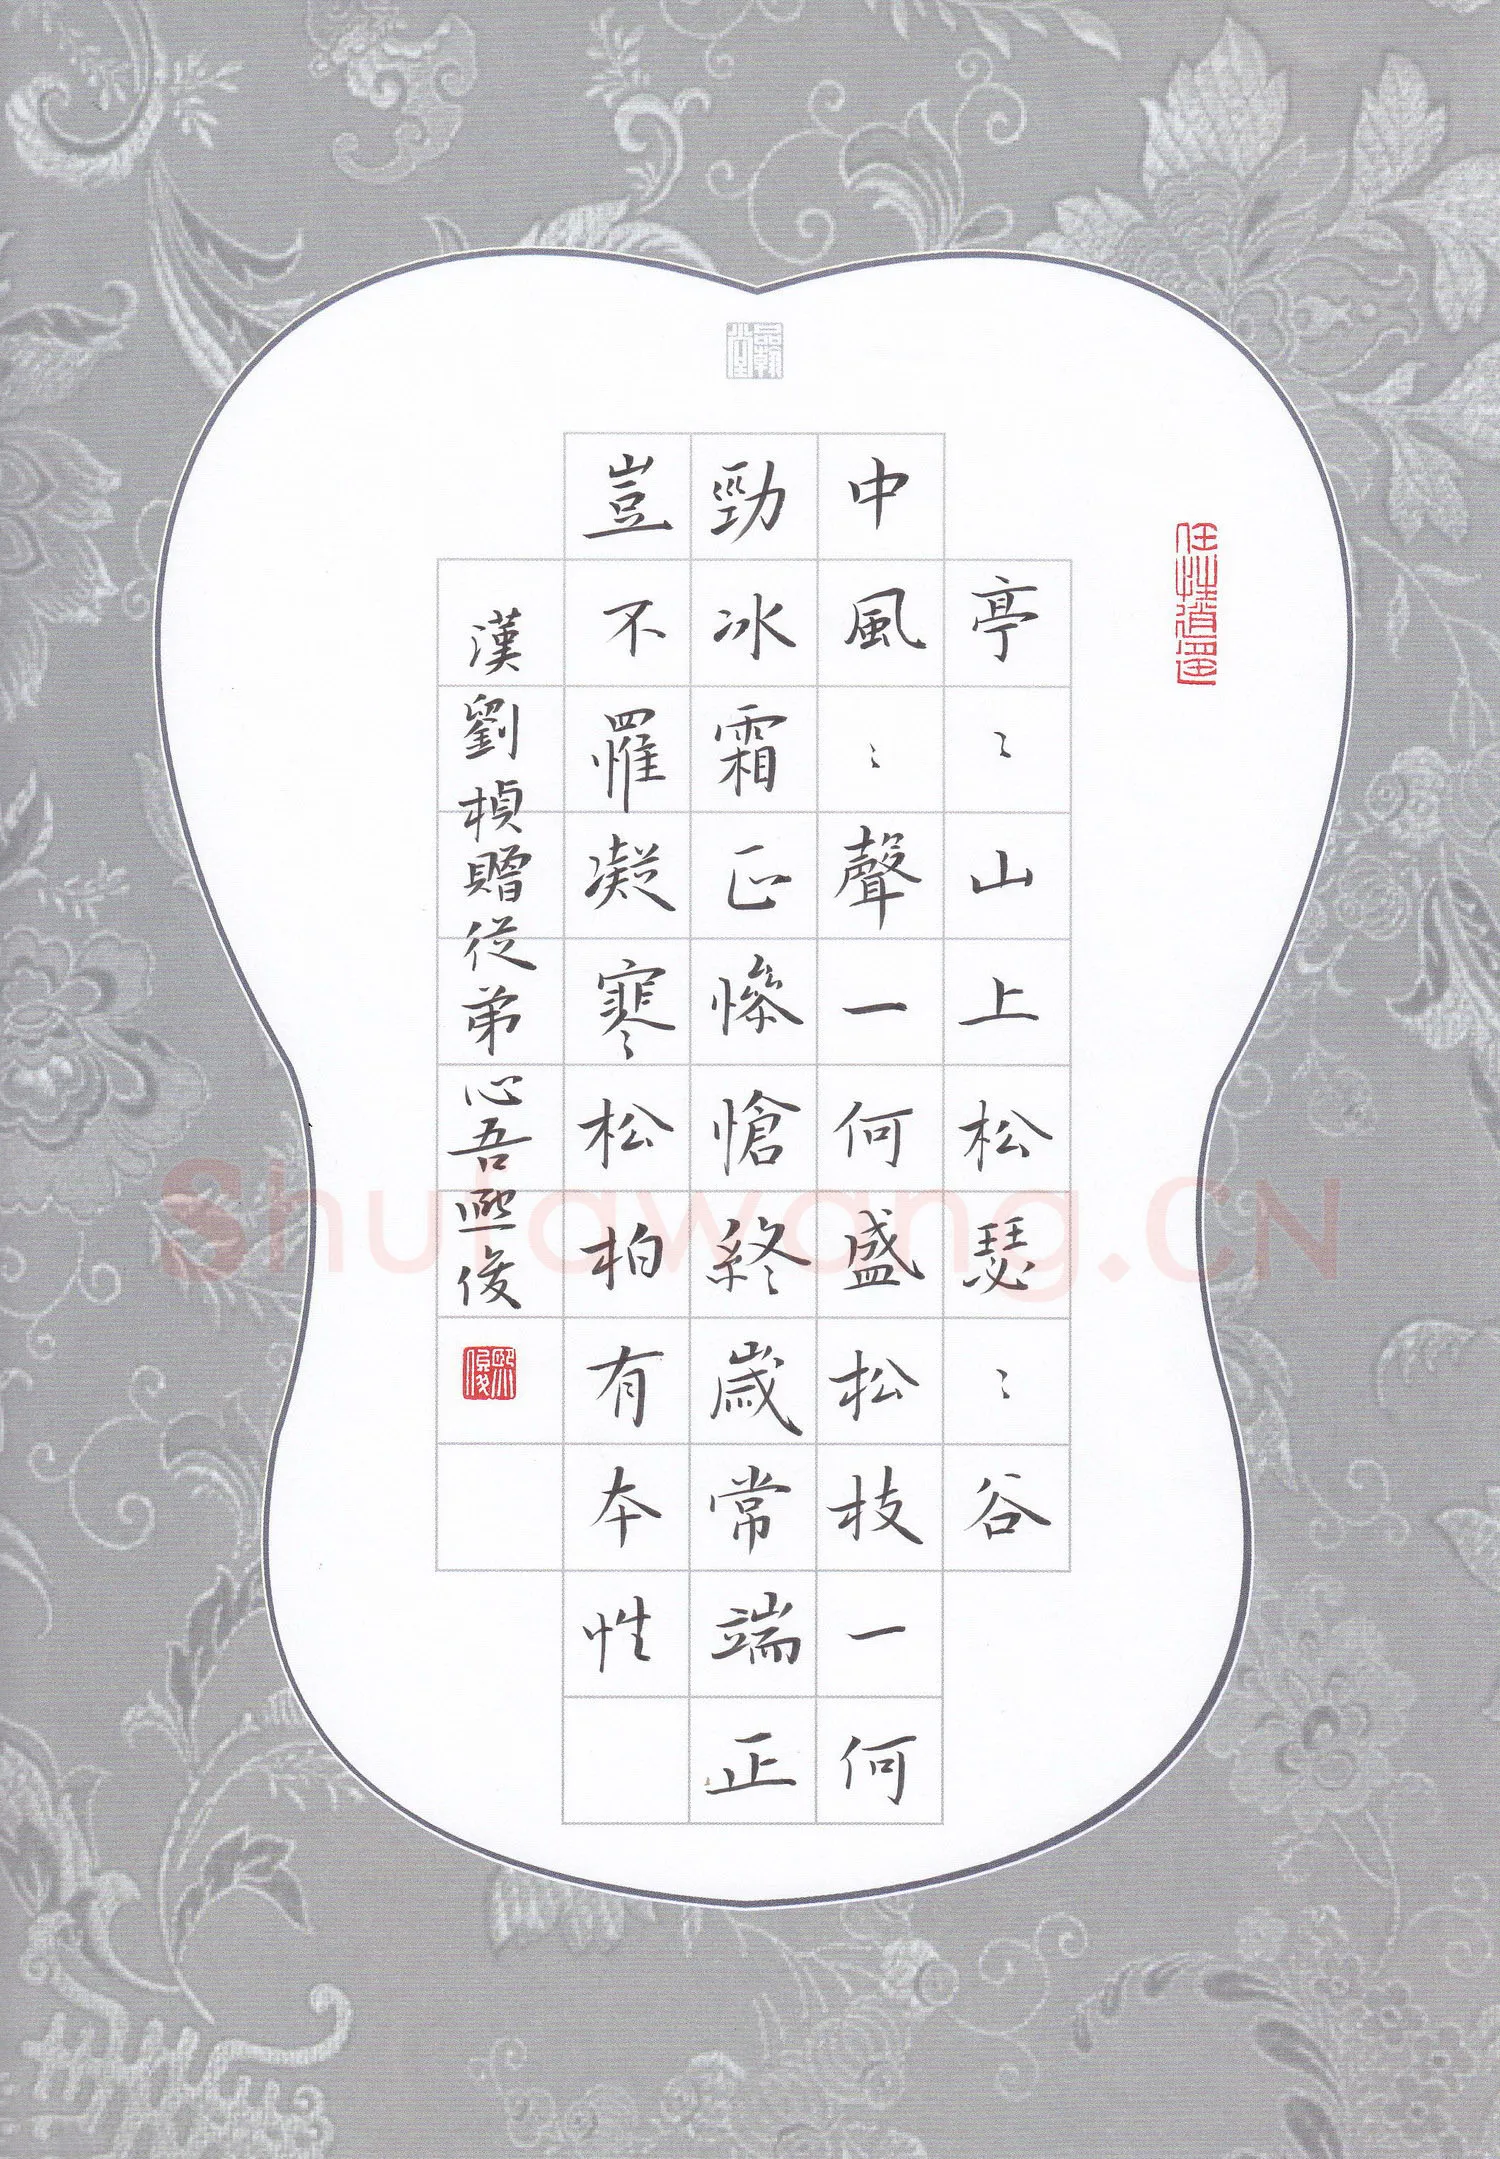 亭〻山上松瑟〻谷
中風〻聲一何盛松枝一何
勁冰霜正慘愴終歲常端正
豈不罹凝寒〻松柏有本性
漢劉楨贈從弟心吾熙俊
熙俊
任性逍遥
品翰堂
Shufawang.CN